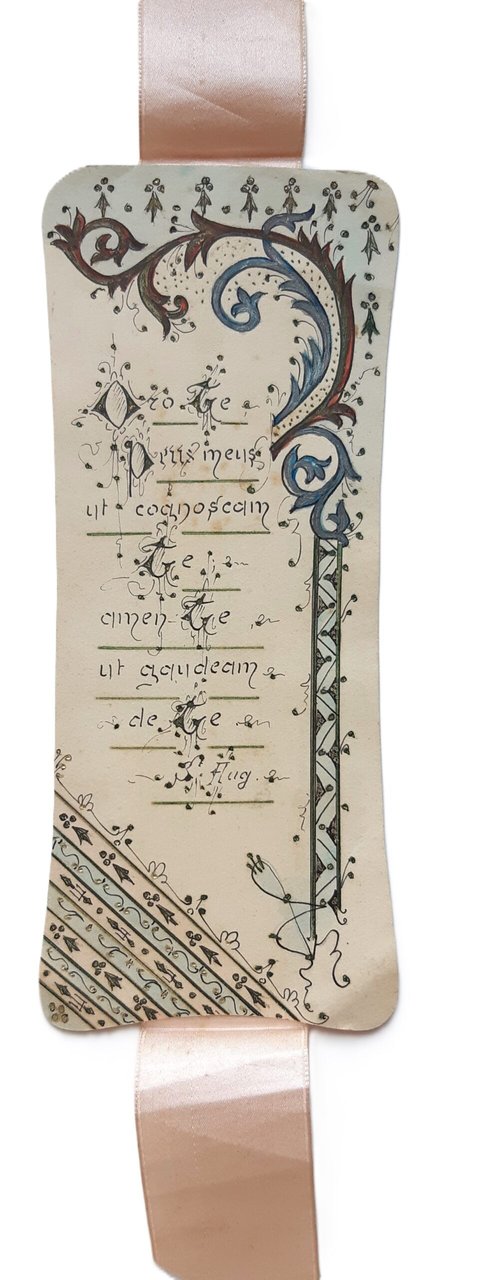 Oro Te
Deus meus
ut cognoscam
Te
amem Te
ut gaudeam
de Te
S. Aug.